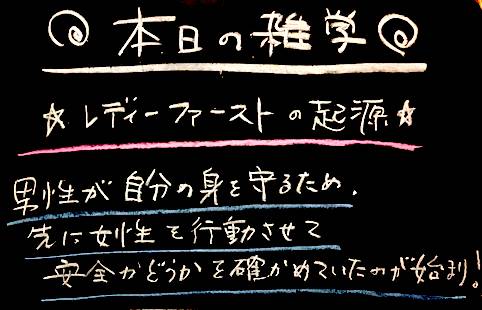 本日の雑学
☆レディーファーストの起源☆
男性が自分の身を守るため、
先に女性を行動させて
安全かどうかを確かめていたのが始まり!